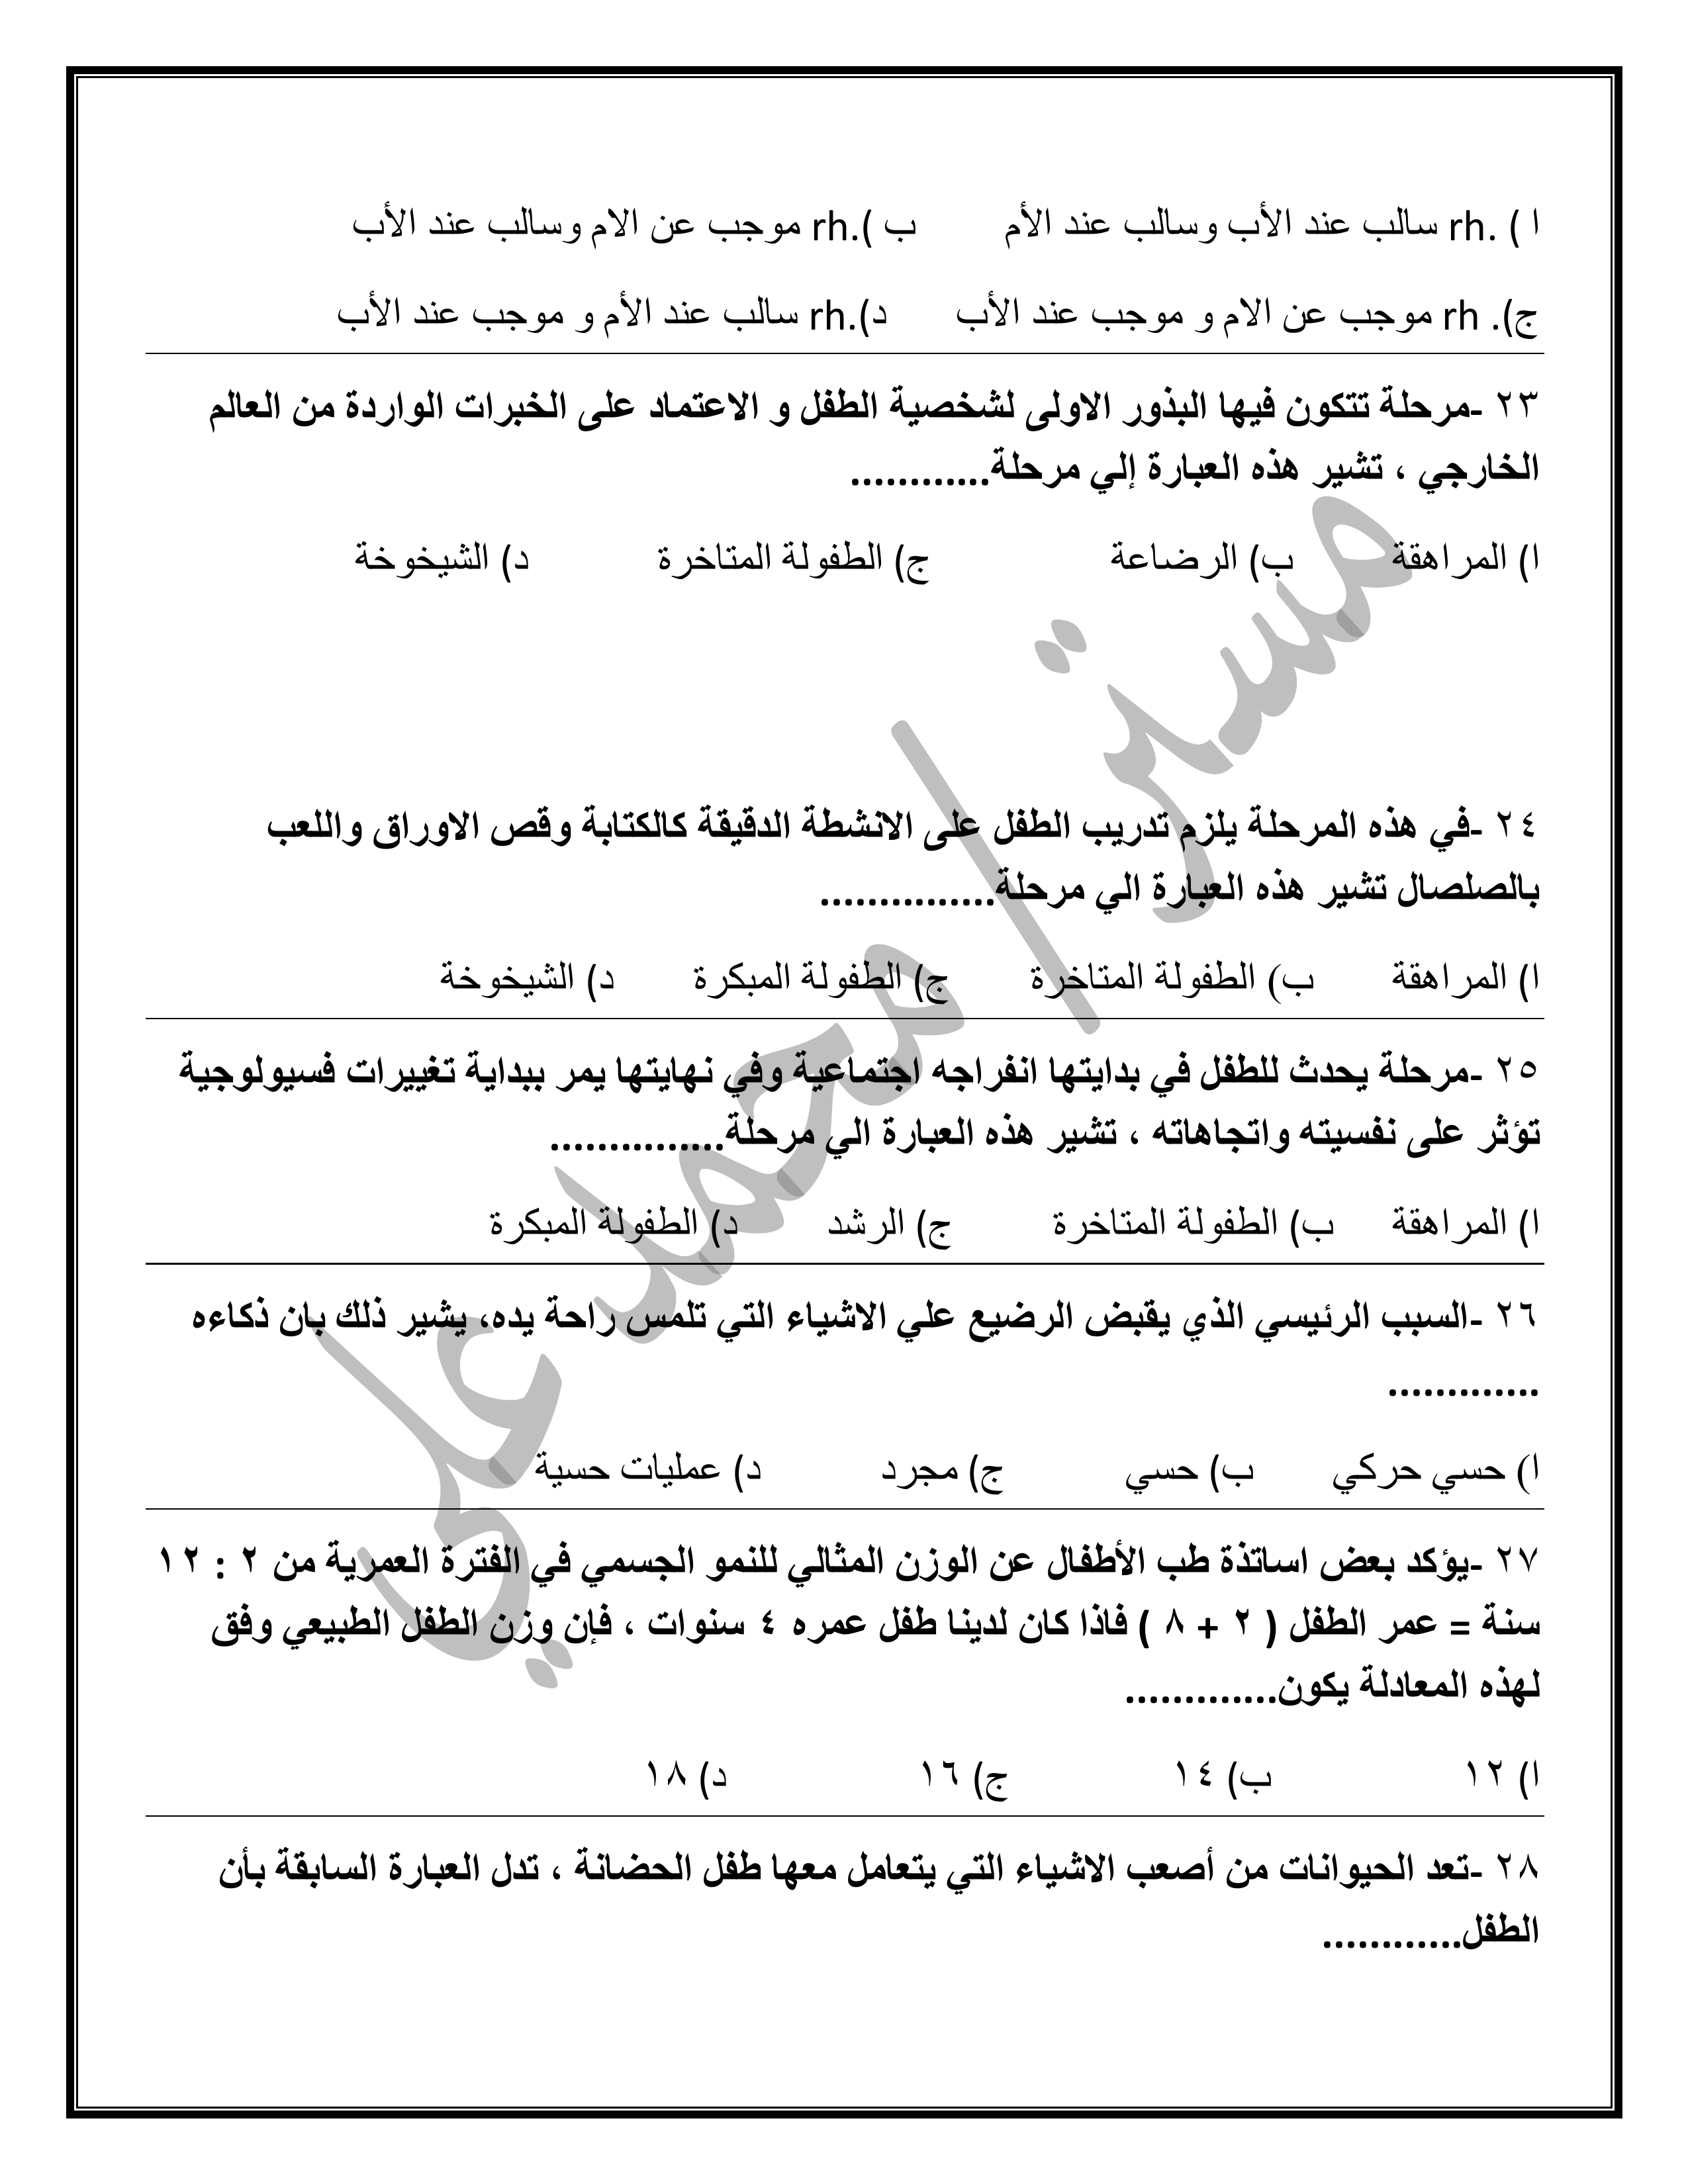 ا ) .rh سالب عند الأب وسالب عند الأم ب ).rh موجب عن الام وسالب عند الأب
ج). rh موجب عن الام و موجب عند الأب د).rh سالب عند الأم و موجب عند الأب
٢٣ -مرحلة تتكون فيها البذور الاولى لشخصية الطفل و الاعتماد على الخبرات الواردة من العالم
الخارجي ، تشير هذه العبارة إلي مرحلة............
ا) المراهقة ب) الرضاعة ج) الطفولة المتاخرة د) الشيخوخة
٢٤ -في هذه المرحلة يلزم تدريب الطفل على الانشطة الدقيقة كالكتابة وقص الاوراق واللعب
بالصلصال تشير هذه العبارة الي مرحلة...............
ا) المراهقة ب) الطفولة المتاخرة ج) الطفولة المبكرة د) الشيخوخة
٢٥ -مرحلة يحدث للطفل في بدايتها انفراجه اجتماعية وفي نهايتها يمر ببداية تغييرات فسيولوجية
تؤثر على نفسيته واتجاهاته ، تشير هذه العبارة الي مرحلة...............
ا) المراهقة ب) الطفولة المتاخرة ج) الرشد د) الطفولة المبكرة
٢٦ -السبب الرئيسي الذي يقبض الرضيع علي الاشياء التي تلمس راحة يده، يشير ذلك بان ذكاءه
.............
ا) حسي حركي ب) حسي ج) مجرد د) عمليات حسية
٢٧ -يؤكد بعض اساتذة طب الأطفال عن الوزن المثالي للنمو الجسمي في الفترة العمرية من ٢ : ١٢
سنة = عمر الطفل ( ٢ + ٨ ) فاذا كان لدينا طفل عمره ٤ سنوات ، فإن وزن الطفل الطبيعي وفق
لهذه المعادلة يكون.............
ا) ١٢ ب) ١٤ ج) ١٦ د) ١٨
٢٨ -تعد الحيوانات من أصعب الاشياء التي يتعامل معها طفل الحضانة ، تدل العبارة السابقة بأن
الطفل............
مستر/ محمد علي